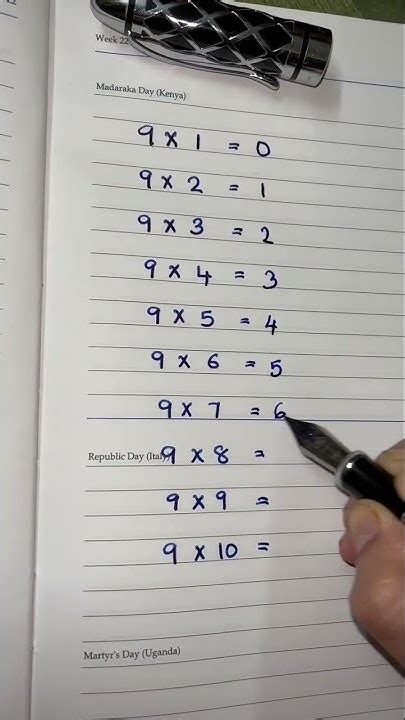 Week 22
Madaraka Day (Kenya)
9 x 1 = 0
9 x 2 = 1
9 x 3 = 2
9 x 4 = 3
9 x 5 = 4
9 x 6 = 5
9 x 7 = 6
Republic Day (Italy) 9 x 8 =
9 x 9 =
9 x 10 =
Martyr's Day (Uganda)